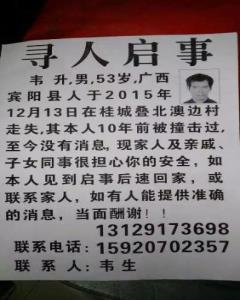 寻人启事
韦 升,男,53岁,广西
宾阳县人于2015年
12月13日在桂城叠北澳边村
走失,其本人10年前被撞击过,
至今没有消息,现家人及亲戚、
子女同事很担心你的安全,如本
人见到启事后速回家,或
联系家人,如有人能提供准确
的消息,当面酬谢!!
13129173698
联系电话:15920702357
联 系 人:韦生